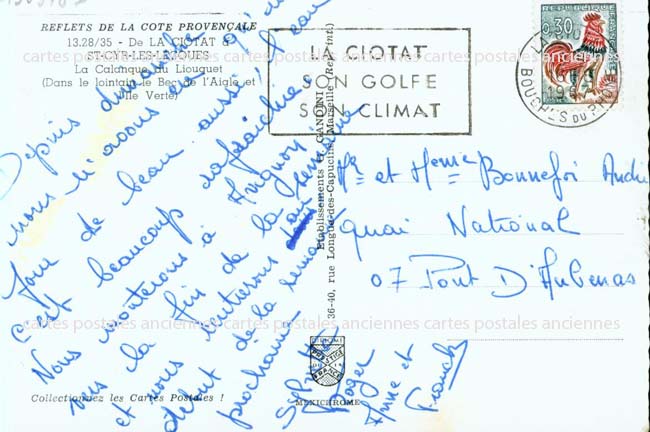 REFLETS DE LA COTE PROVENÇALE
13.28/35 - De LA CIOTAT à
ST-CYR-LES-LECQUES
La Calanque du Liouquet
(Dans le lointain le Bec de l'Aigle et
l'Ile Verte)
LA CIOTAT
SON GOLFE
SON CLIMAT
RÉPUBLIQUE FRANÇAISE
0,30
BOUCHES DU RHONE
Depuis dimanche
nous n'avons eu qu'un
jour de beau aussi l'eau
c'est beaucoup rafraichie
Nous monterons à Avignon
vers la fin de la semaine
et nous rentrerons au
début de la semaine
prochaine
Roger
Anne et
Franck
Mr et Mme Bonnefoi André
quai National
07 Pont D'Aubenas
Etablissements GANDINI
36-40, rue Longue-des-Capucins, Marselle (Rep. int.)
cartes postales anciennes cartes postales anciennes cartes postales anciennes
Collectionnez les Cartes Postales !
MEXICHROME